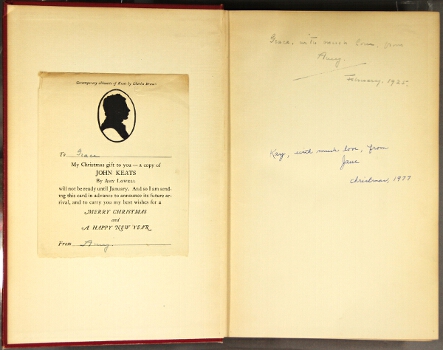 Contemporary silhouette of Keats by Charles Brown
To Grace
My Christmas gift to you — a copy of
JOHN KEATS
By Amy Lowell
will not be ready until January. And so I am send-
ing this card in advance to announce its future ar-
rival, and to carry you my best wishes for a
MERRY CHRISTMAS
and
A HAPPY NEW YEAR
From Amy.
Grace, with much love, from
Amy.
February, 1925.
Kay, with much love, from
Jane
Christmas, 1933